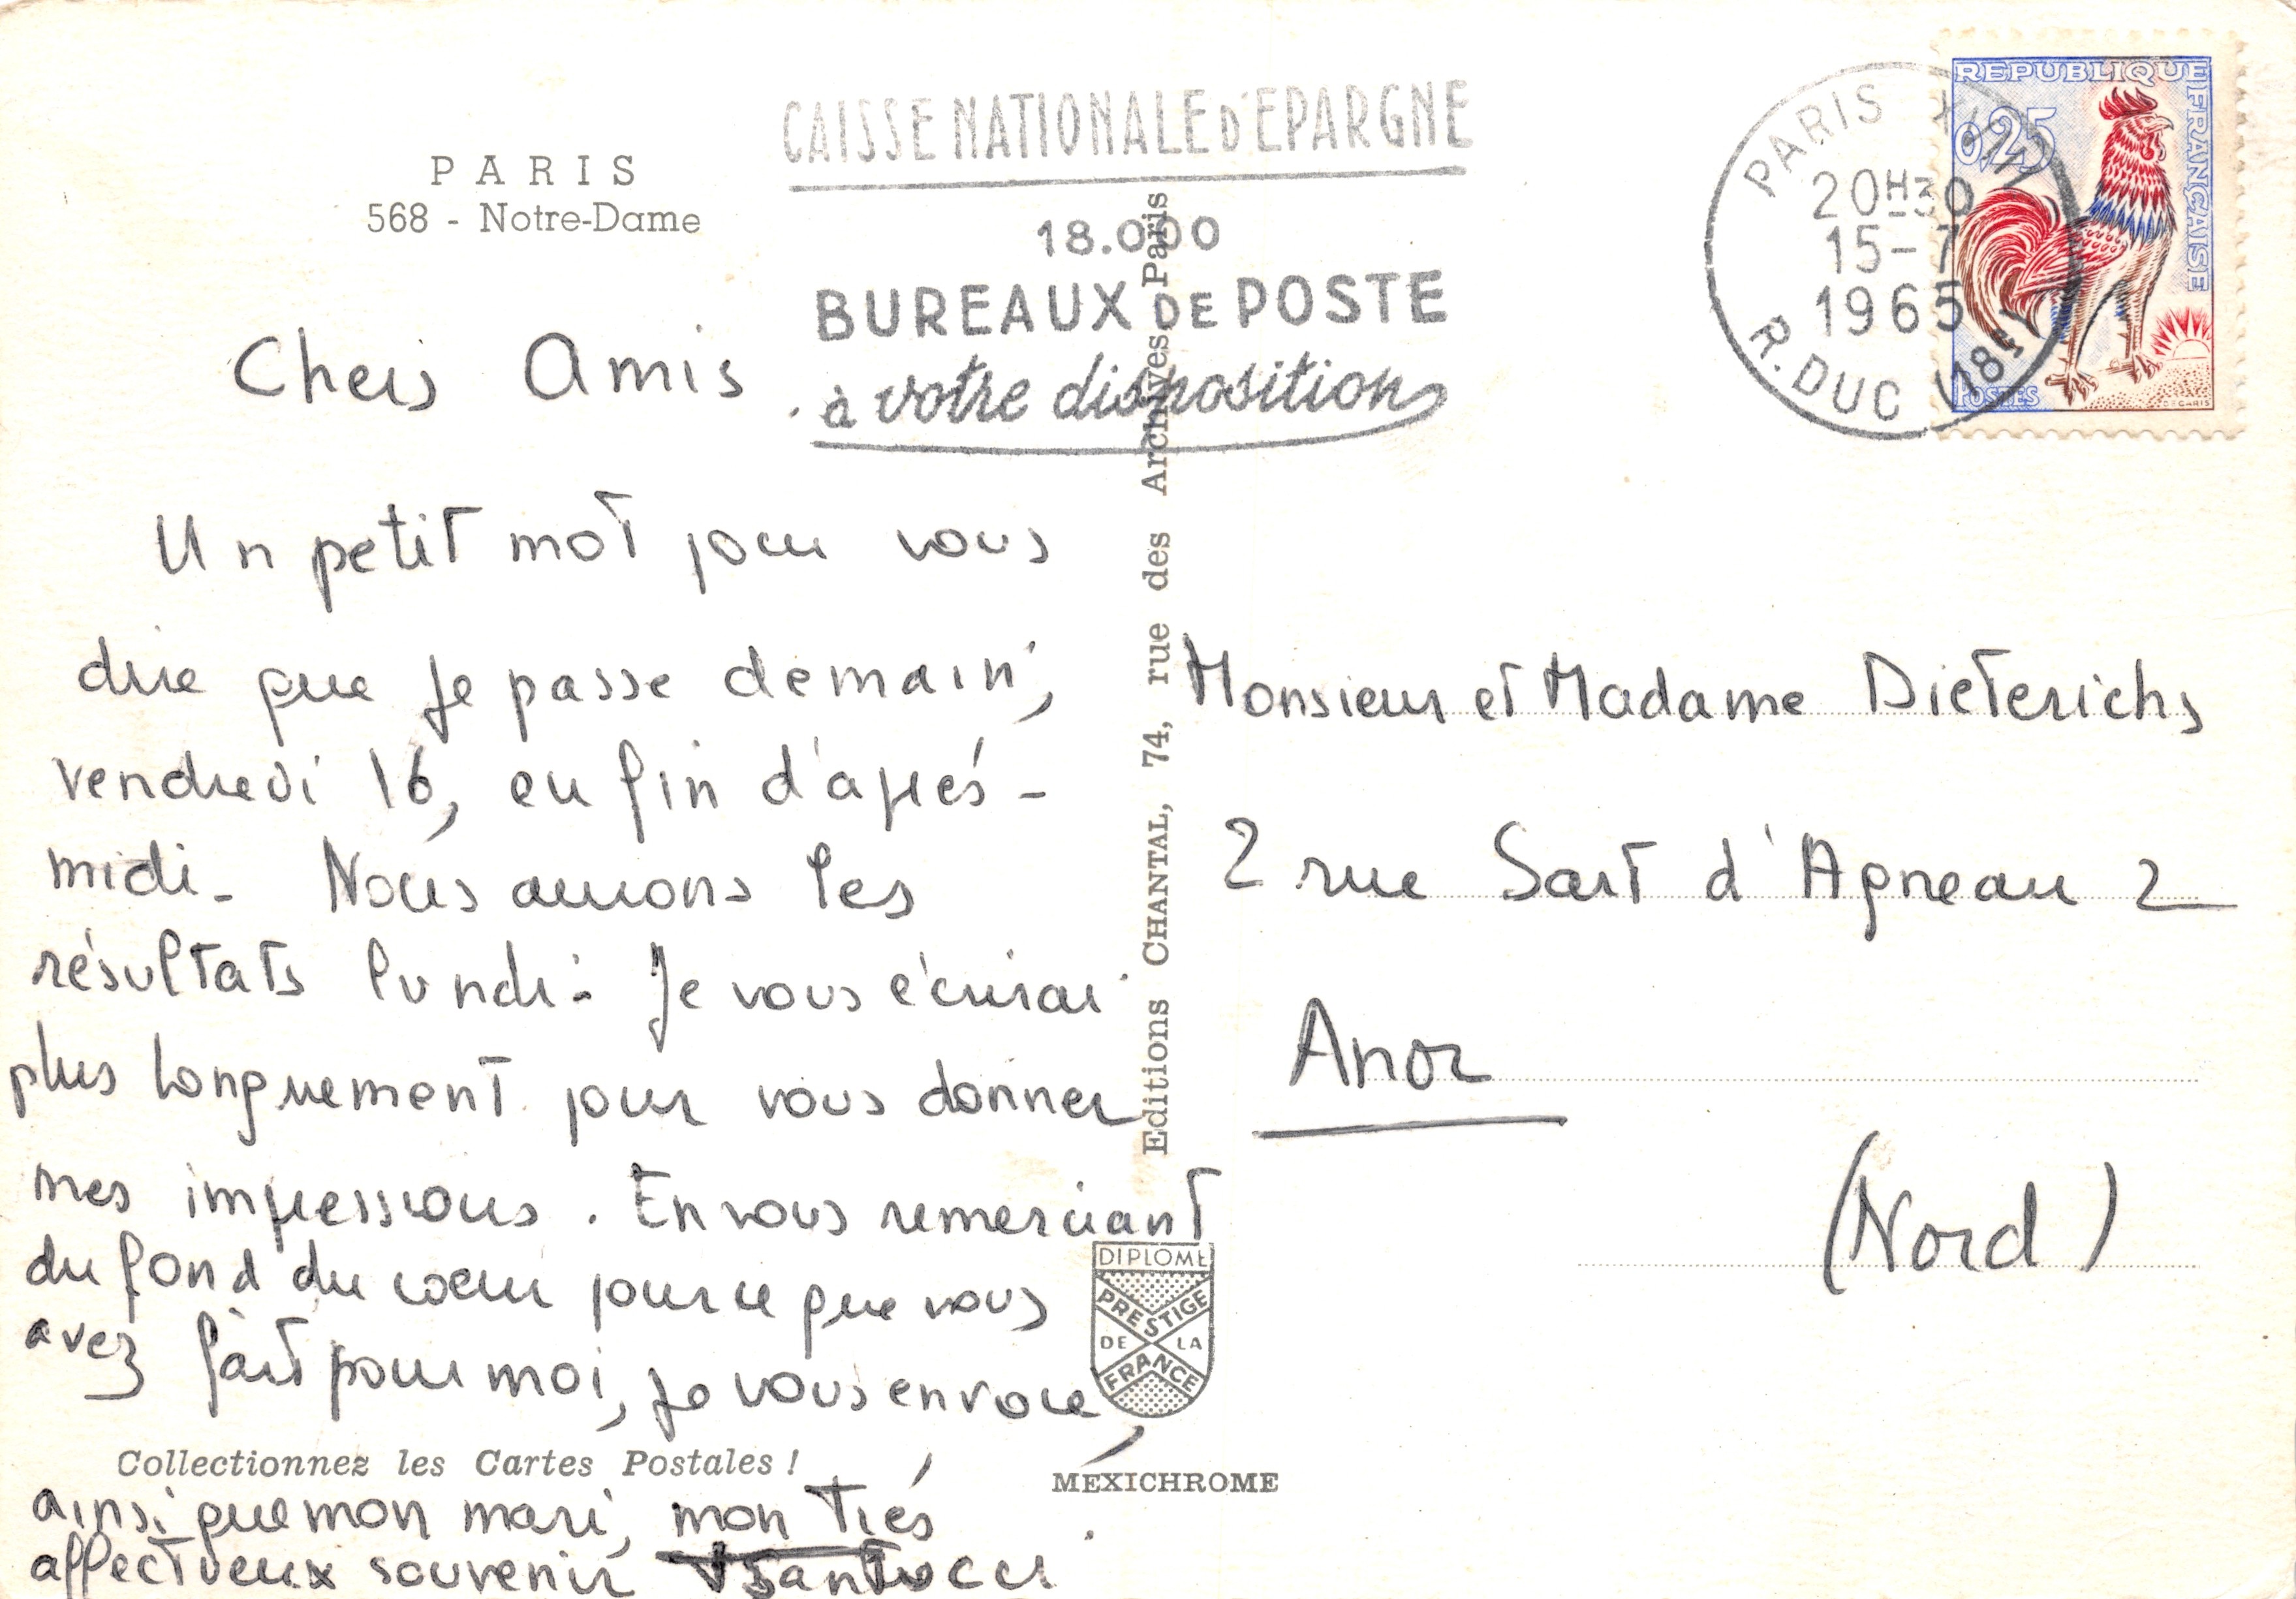 PARIS
568 - Notre-Dame
CAISSE NATIONALE D'EPARGNE
18.000
BUREAUX DE POSTE
à votre disposition
PARIS XVIII
20H30
15-7
1965
R. DUC (18e)
REPUBLIQUE FRANÇAISE
0,25
POSTES
DECARIS
Chers Amis.
Un petit mot pour vous
dire que je passe demain,
vendredi 16, en fin d'après-
midi. Nous aurons les
résultats lundi. Je vous écrirai
plus longuement pour vous donner
mes impressions. En vous remerciant
du fond du coeur pour ce que vous
avez fait pour moi, je vous envoie,
Collectionnez les Cartes Postales !
ainsi que mon mari, mon très
affectueux souvenir Santucci
Editions CHANTAL, 74, rue des Archives, Paris
DIPLOME
PRESTIGE
DE LA
FRANCE
MEXICHROME
Monsieur et Madame Dieterichs
2 rue Sart d'Agneau 2
Anor
(Nord)